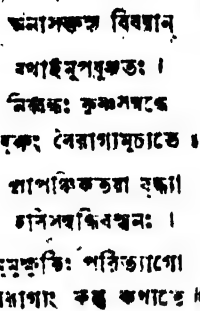 অনাসক্তস্য বিষয়ান্
যথাইমুপযুঞ্জতঃ ।
নির্ব্বন্ধঃ কৃষ্ণসম্বন্ধে
যুক্তং বৈরাগ্যমুচ্যতে ॥
প্রাপঞ্চিকতয়া বুদ্ধ্যা
হরিসম্বন্ধিবস্তুনঃ ।
মুমুক্ষুভিঃ পরিত্যাগো
বৈরাগ্যং ফল্গু কথ্যতে ॥